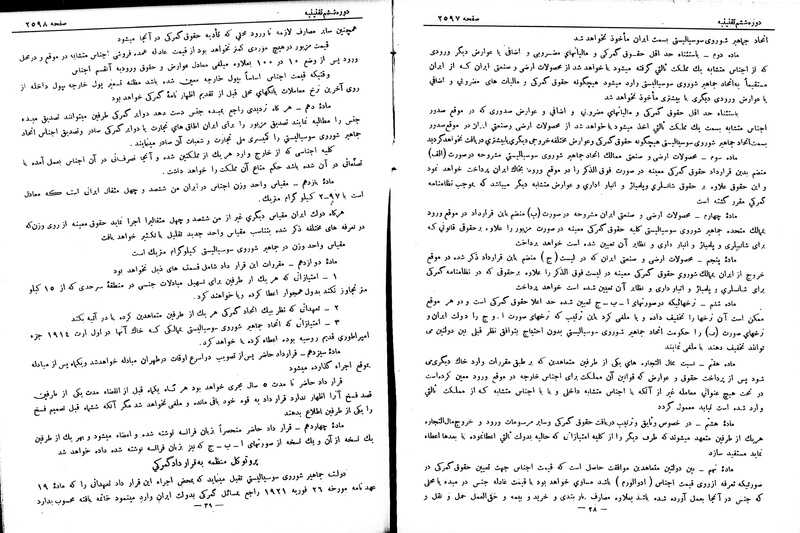 دوره ششم تقنینیه
صفحه ۲۵۹۷
اتحاد جماهیر شوروی سوسیالیستی بسمت ایران مأخوذ نخواهد شد
ماده دوم - باستثناء حد اقل حقوق گمرکی و مالیاتهای مضروبی و اضافی یا عوارض دیگر ورودی
که از اجناس متشابه یك مملکت ثالثی گرفته میشود یا خواهد شد از محصولات ارضی و صنعتی ایران کـه از ایران
مستقیماً به اتحاد جماهیر شوروی سوسیالیستی وارد میشود هیچگونه حقوق گمرکی و مالیات های مضروبی و اضافی
یا عوارض ورودی دیگری یا بیشتری مأخوذ نخواهد شد
باستثناء حد اقل حقوق گمرکی و مالیاتهای مضروبی و اضافی و عوارض صدوری که در موقع صدور
اجناس متشابه بسمت یك مملکت ثالثی اخذ میشود یا خواهد شد از محصولات ارضی و صنعتی ایران در موقع صدور
بسمت اتحاد جماهیر شوروی سوسیالیستی هیچگونه حقوق گمرکی و عوارض مختلفه خروجی دیگری یا بیشتری دریافت نخواهد گردید
ماده سوم - محصولات ارضی و صنعتی ممالك اتحاد جماهیر شوروی سوسیالیستی مشروحه در صورت (الف)
منضم بدین قرارداد حقوق گمرکی معینه در صورت فوق الذکر را در موقع ورود بخاك ایران پرداخت خواهد نمود
و این حقوق علاوه بر حقوق شانسلری و پلمباژ و انبار اداری و عوارض متشابه دیگر میباشد که بموجب نظامنامه
گمرکی مقرر گشته است
ماده چهارم - محصولات ارضی و صنعتی ایران مشروحه در صورت (ب) منضم باین قرارداد در موقع ورود
بممالك متحده جماهیر شوروی سوسیالیستی کلیه حقوق گمرکی معینه در صورت مزبور را علاوه بر حقوقی قانونی کـه
برای شانسلری و پلمباژ و انبار داری و نظایر آن معین شده است خواهد پرداخت
ماده پنجم - محصولات ارضی و صنعتی ایران که در لیست (ج) منضم باین قرارداد ذکر شده در موقع
خروج از ایران بممالك شوروی حقوق گمرکی معینه در لیست فوق الذکر را علاوه بر حقوقی که در نظامنامه گمرکی
برای شانسلری و پلمباژ و انبار داری و نظایر آن تعیین شده است خواهد پرداخت
ماده ششم - نرخهائیکه در صورتهای ا - ب - ج تعیین شده حد اعلا حقوق گمرکی است و در هر موقع
ممکن است آن نرخها را تخفیف داده و یا ملغی کرد باین ترتیب که نرخهای صورت ا - و ج را دولت ایران و
نرخهای صورت (ب) را حکومت اتحاد جماهیر شوروی سوسیالیستی بدون احتیاج بتوافق نظر قبلی بین دولتین می
توانند تخفیف دهند یا ملغی نمایند
ماده هفتم - نسبت بمال التجاره های یکی از طرفین متعاهدین که بر طبق مقررات وارد خاك دیگری می
شود پس از پرداخت حقوق و عوارض که قوانین آن مملکت برای اجناس خارجه در موقع ورود معین کرده است
در تحت هیچ عنوانی معامله غیر از آنکه با اجناس متشابه داخلی و یا با اجناس متشابه کـه از مملکت ثالثی
وارد شده است نباید معمول گردد
ماده هشتم - در خصوص وثایق و ترتیب دریافت حقوق گمرکی و سایر مرسومات ورود و خروج مال التجاره
هریك از طرفین متعهد میشوند که طرف دیگر را از کلیه امتیازاتی که حالیه بدولت ثالثی اعطا نموده یا بعدها اعطاء
نماید مستفید سازد
ماده نهم - بین دولتین متعاهدین موافقت حاصل است که قیمت اجناس جهت تعیین حقوق گمرکی در
صورتیکه تعرفه از روی قیمت اجناس (ادوالورم) باشد مساوی خواهد بود با قیمت عادله جنس در مبدء یا محلی
که جنس در آنجا بعمل آورده شده باشد بعلاوه مصارف بار بندی و خرید و بیمه و حق العمل حمل و نقل و
- ۳۸ -
دوره ششم تقنینیه
صفحه ۲۵۹۸
همچنین سایر مصارف لازمه تا ورود محلی که تأدیه حقوق گمرکی در آنجا میشود
قیمت مزبور در هیچ موردی کمتر نخواهد بود از قیمت عادله عمده فروشی اجناس متشابه در موقع و در محل
ورود پس از وضع ۱۰ در ۱۰۰ بعلاوه مبلغی معادل عوارض و حقوق ورودیه آنقسم اجناس
وقتیکه قیمت اجناس اساساً بپول خارجه معین شده باشد مظنه تسعیر پول خارجه بپول داخله از
روی آخرین نرخ معاملات بانکهای محلی قبل از تقدیم اظهار نامه گمرکی خواهد بود
ماده دهم - هر گاه تردیدی راجع بمبدء جنس دست دهد دوایر گمرکی طرفین میتوانند تصدیق مبدء
جنس را مطالبه نمایند تصدیق مزبور را برای ایران اطاق های تجارت یا دوایر گمرکی صادر و تصدیق اجناس اتحاد
جماهیر شوروی سوسیالیستی را کمیسری ملی تجارت و شعبات آن صادر مینمایند.
کلیه اجناسی که از خارج وارد هر یك از مملکتین شده و آنجا تصرفاتی در آن اجناس بعمل آمده یا
تصنعاتی در آن شده باشد حکم متاع آن مملکت را خواهد داشت.
ماده یازدهم - مقیاس واحد وزن اجناس در ایران من ششصد و چهل مثقال ایرانی است کـه معادل
است با ۲٫۹۷ کیلو گرام متریك.
هرگاه دولت ایران مقیاس دیگری غیر از من ششصد و چهل مثقالیرا اجرا نماید حقوق معینه از روی وزن که
در تعرفه های مختلفه ذکر شده بتناسب مقیاس واحد جدید تقلیل یا تکثیر خواهد یافت
مقیاس واحد وزن در جماهیر شوروی سوسیالیستی کیلوگرام متریك است
ماده دوازدهم - مقررات این قرار داد شامل قسمت های ذیل نخواهد بود
۱ - امتیازاتی که هر یك از طرفین برای تسهیل مبادلات جنسی در منطقه سرحدی که از ۱۵ کیلو
متر تجاوز نکند بدول همجوار اعطا کرده و یا خواهند کرد.
۲ - تعهداتی که نظر بیك اتحاد گمرکی هر یك از طرفین متعاهدین کرده یا در آتیه بکند
۳ - امتیازاتی که اتحاد جماهیر شوروی سوسیالیستی بممالکی کـه خاك آنها در اول اوت ۱۹۱۴ جزء
امپراطوری قدیم روسیه بوده اعطاء کرده یا خواهد کرد.
ماده سیزدهم - قرارداد حاضر پس از تصویب در اسرع اوقات در طهران مبادله خواهد شد و یکماه پس از مبادله
بموقع اجراء گذارده میشود
قرار داد حاضر تا مدت ۵ سال مجری خواهد بود هر گاه یکماه قبل از انقضاء مدت یکی از طرفین
قصد فسخ آنرا اظهار ندارد قرار داد به قوه خود باقی مانده و ملغی نخواهد شد مگر آنکه ششماه قبل تصمیم فسخ
را یکی از طرفین اطلاع بدهند
ماده چهاردهم - قرار داد حاضر منحصراً بزبان فرانسه نوشته شده و امضاء میشود و بهر یك از طرفین
یك نسخه از آن و یك نسخه از صورتهای ا - ب - ج که نیز بزبان فرانسه نوشته شده داده خواهد شد
پروتوکل منظمه به قرار داد گمرکی
دولت جماهیر شوروی سوسیالیستی تقبل مینماید که بمحض اجراء این قرار داد تعهداتی را که ماده ۱۹
عهد نامه مورخه ۲۶ فوریه ۱۹۲۱ راجع بمسائل گمرکی بدولت ایران وارد مینمود خاتمه یافته محسوب بدارد
- ۳۹ -